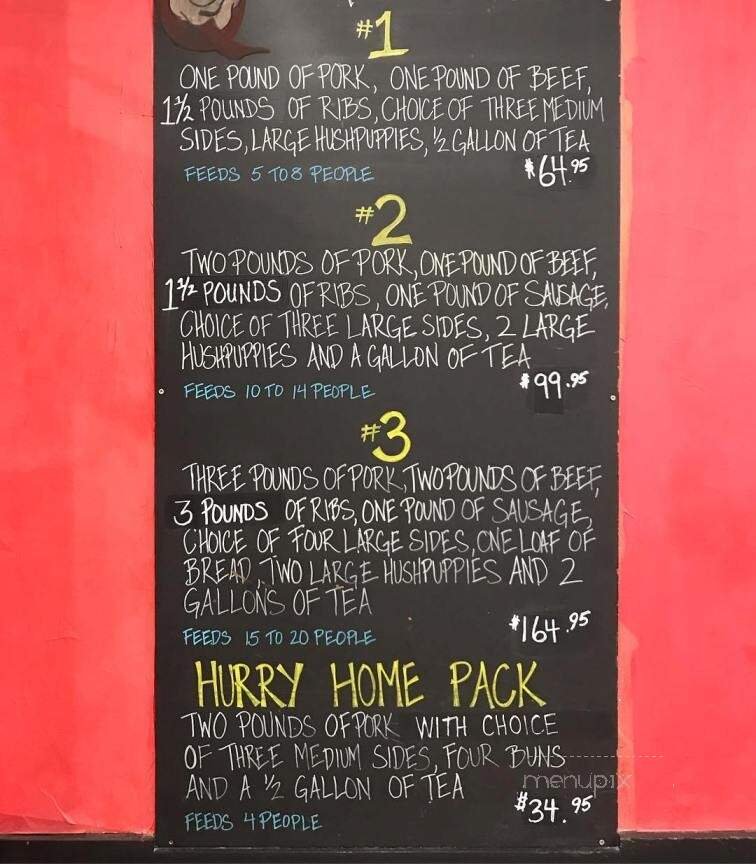 #1
ONE POUND OF PORK, ONE POUND OF BEEF,
1 1/2 POUNDS OF RIBS, CHOICE OF THREE MEDIUM
SIDES, LARGE HUSHPUPPIES, 1/2 GALLON OF TEA
FEEDS 5 TO 8 PEOPLE $64.95
#2
TWO POUNDS OF PORK, ONE POUND OF BEEF,
1 1/2 POUNDS OF RIBS, ONE POUND OF SAUSAGE,
CHOICE OF THREE LARGE SIDES, 2 LARGE
HUSHPUPPIES AND A GALLON OF TEA
FEEDS 10 TO 14 PEOPLE $99.95
#3
THREE POUNDS OF PORK, TWO POUNDS OF BEEF,
3 POUNDS OF RIBS, ONE POUND OF SAUSAGE,
CHOICE OF FOUR LARGE SIDES, ONE LOAF OF
BREAD, TWO LARGE HUSHPUPPIES AND 2
GALLONS OF TEA
FEEDS 15 TO 20 PEOPLE $164.95
HURRY HOME PACK
TWO POUNDS OF PORK WITH CHOICE
OF THREE MEDIUM SIDES, FOUR BUNS
AND A 1/2 GALLON OF TEA
menupix
FEEDS 4 PEOPLE $34.95